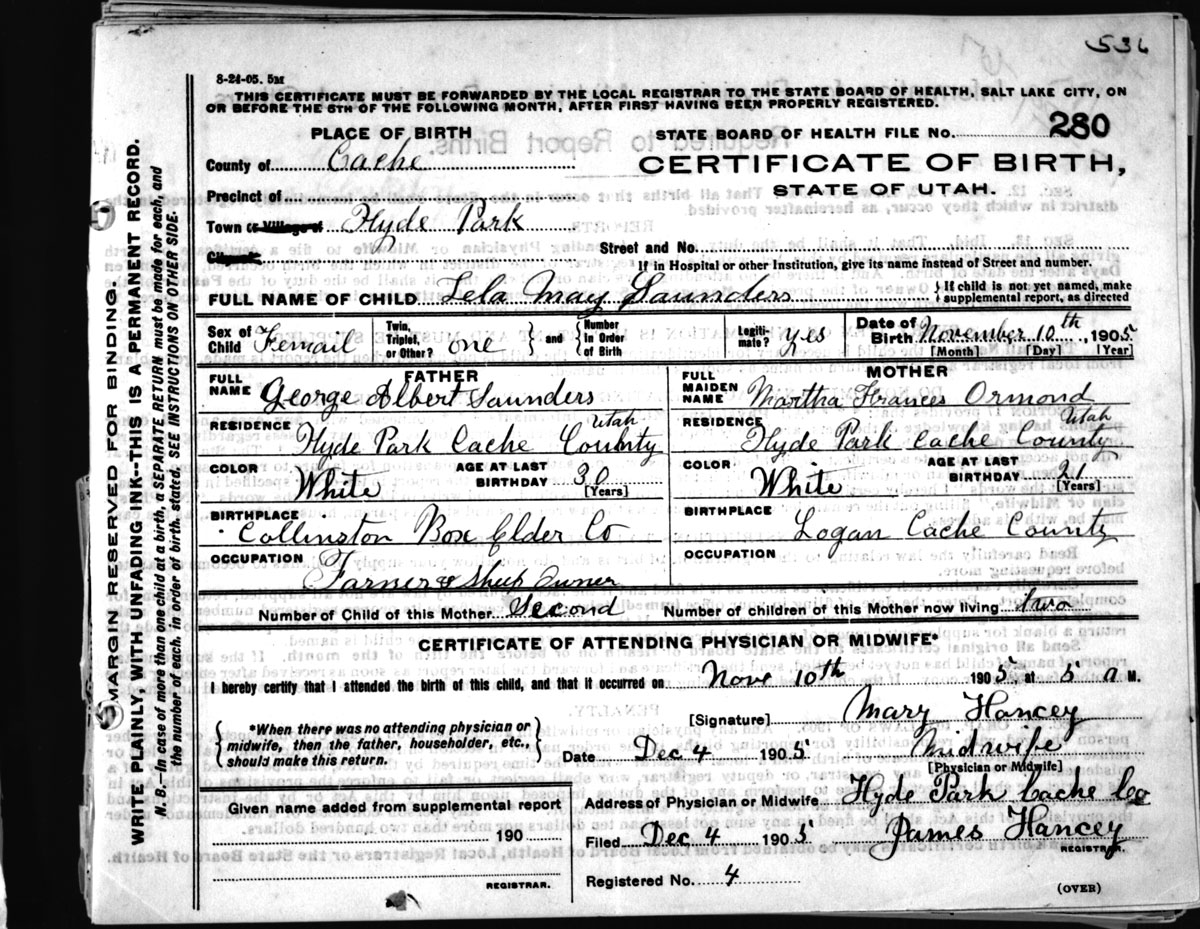 536
8-24-05. 5M
THIS CERTIFICATE MUST BE FORWARDED BY THE LOCAL REGISTRAR TO THE STATE BOARD OF HEALTH, SALT LAKE CITY, ON
OR BEFORE THE 5TH OF THE FOLLOWING MONTH, AFTER FIRST HAVING BEEN PROPERLY REGISTERED.
PLACE OF BIRTH
STATE BOARD OF HEALTH FILE NO. 280
County of Cache
CERTIFICATE OF BIRTH,
Precinct of
STATE OF UTAH.
Town or Village of Hyde Park
City
Street and No.
If in Hospital or other Institution, give its name instead of Street and number.
FULL NAME OF CHILD Lela May Saunders } If child is not yet named, make
supplemental report, as directed
Sex of Child Femail Twin, Triplet, or Other? one } and { Number in Order of Birth Legiti-mate? yes Date of Birth November 10th, 1905
[Month] [Day] [Year]
FATHER
FULL NAME George Albert Saunders
RESIDENCE Hyde Park Cache County Utah
COLOR White AGE AT LAST BIRTHDAY 30
[Years]
BIRTHPLACE Collinston Box Elder Co
OCCUPATION Farner & Sheep Owner
MOTHER
FULL MAIDEN NAME Martha Frances Ormond
RESIDENCE Hyde Park Cache County Utah
COLOR White AGE AT LAST BIRTHDAY 21
[Years]
BIRTHPLACE Logan Cache County
OCCUPATION
Number of Child of this Mother Second Number of children of this Mother now living two
CERTIFICATE OF ATTENDING PHYSICIAN OR MIDWIFE*
I hereby certify that I attended the birth of this child, and that it occurred on Nove 10th 1905, at 5 a M.
*When there was no attending physician or
midwife, then the father, householder, etc.,
should make this return.
[Signature] Mary Hancey
Date Dec 4 1905 Midwife
[Physician or Midwife]
Given name added from supplemental report
190
REGISTRAR.
Address of Physician or Midwife Hyde Park Cache Co
Filed Dec 4 1905 James Hancey
REGISTRAR.
Registered No. 4
(OVER)
MARGIN RESERVED FOR BINDING.
WRITE PLAINLY, WITH UNFADING INK--THIS IS A PERMANENT RECORD.
N. B.—In case of more than one child at a birth, a SEPARATE RETURN must be made for each, and
the number of each, in order of birth, stated. SEE INSTRUCTIONS ON OTHER SIDE.